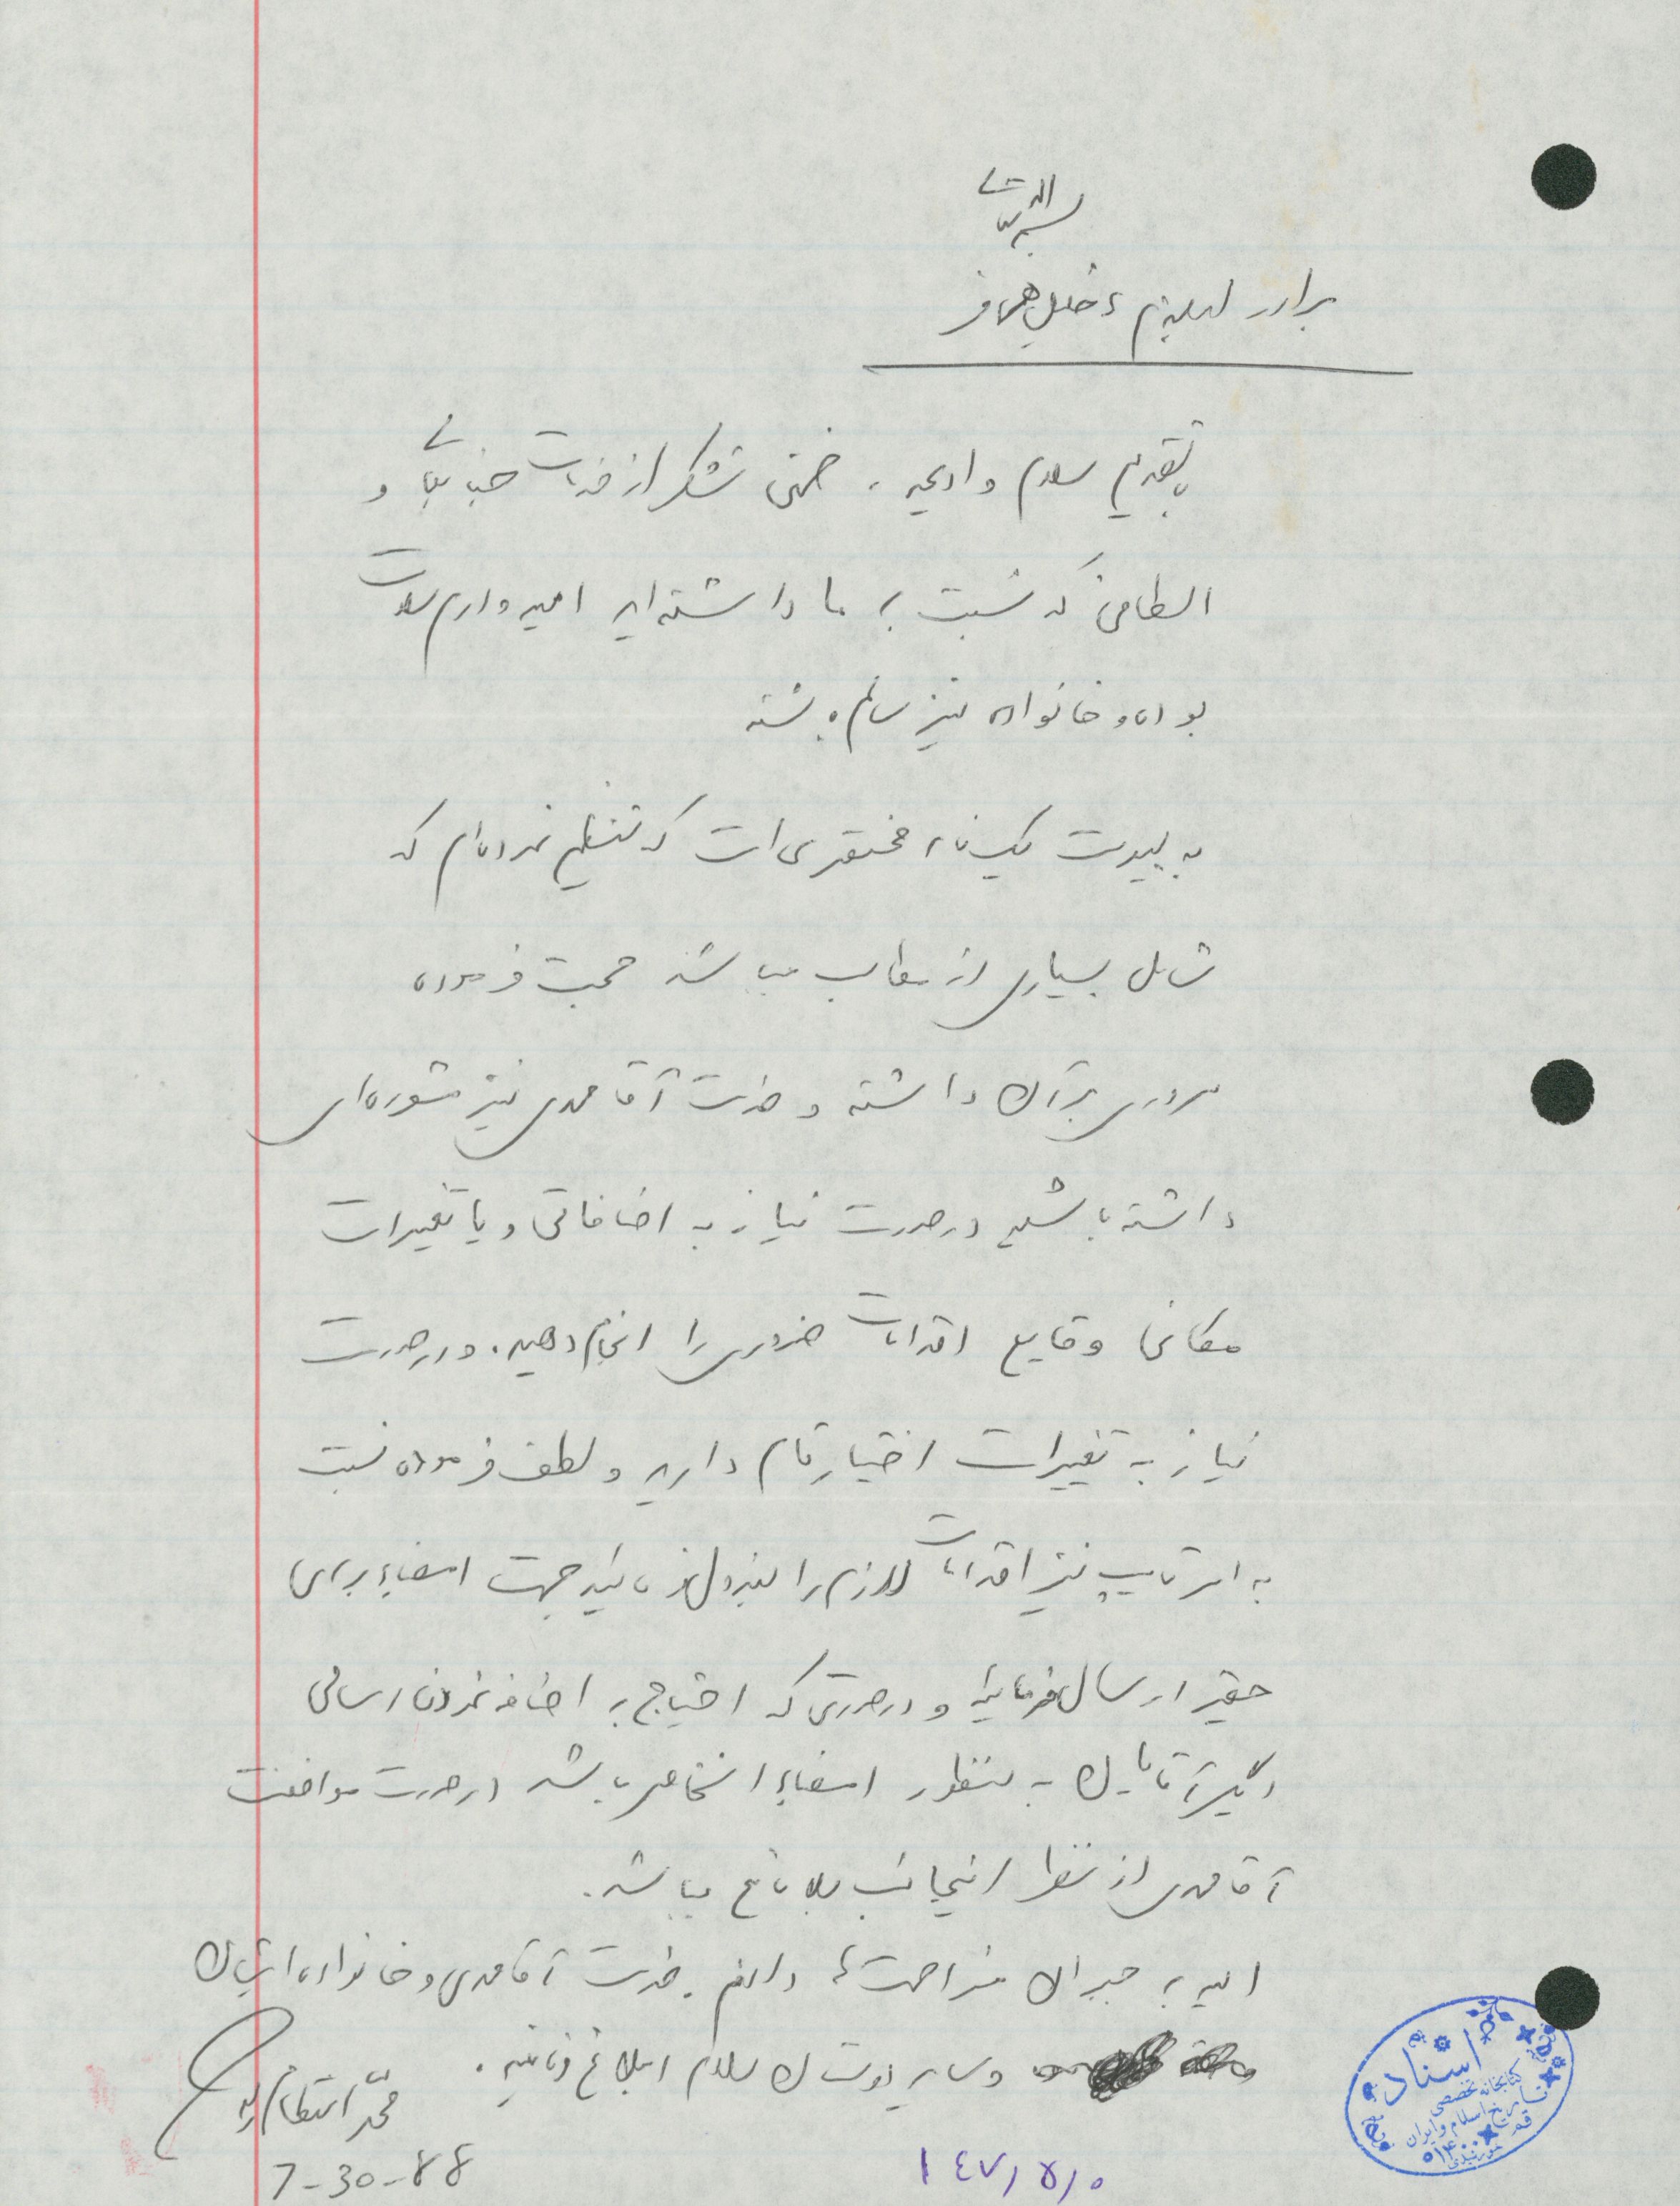 بسمه تعالی
برادر خلیل
بتقدیم سلام و ادعیه، ضمن تشکر از خدمات جنابعالی و
الطافی که نسبت به ما داشته‌اید امیدوارم سلامت
بوده و خانواده نیز سالم باشند
به پیوست یک نامه مختصری است که تنظیم نموده‌ام که
شامل بسیاری از مطالب میباشد محبت فرموده
مروری بر آن داشته و خدمت آقا مهدی نیز مشوره‌ای
داشته باشید در صورت نیاز به اضافاتی و یا تغییرات
مکانی وقایع اقدامات ضروری را انجام دهید. و در صورت
نیاز به تغییرات اختیار تام دارید و لطف فرموده نسبت
به امر تایپ نیز اقدامات لازم را مبذول فرمائید جهت امضاء برای
حقیر ارسال فرمائید و در صورتی که احتیاج به اضافه نمودن اسامی
دیگر آقایان به منظور امضاء اشخاص باشد در صورت موافقت
آقا مهدی از نظر اینجانب بلامانع میباشد.
امید به جبران مزاحمت‌ها دارم. خدمت آقا مهدی و خانواده ایشان
و سایر دوستان سلام ابلاغ فرمائید.
محمد
7-30-88
۱٤۷/۵/۰
اسناد
کتابخانه تخصصی
تاریخ اسلام و ایران
قم